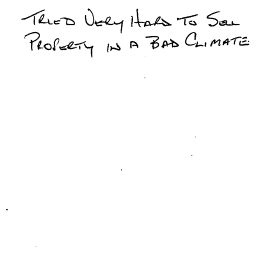 TRIED VERY HARD TO SELL
PROPERTY IN A BAD CLIMATE